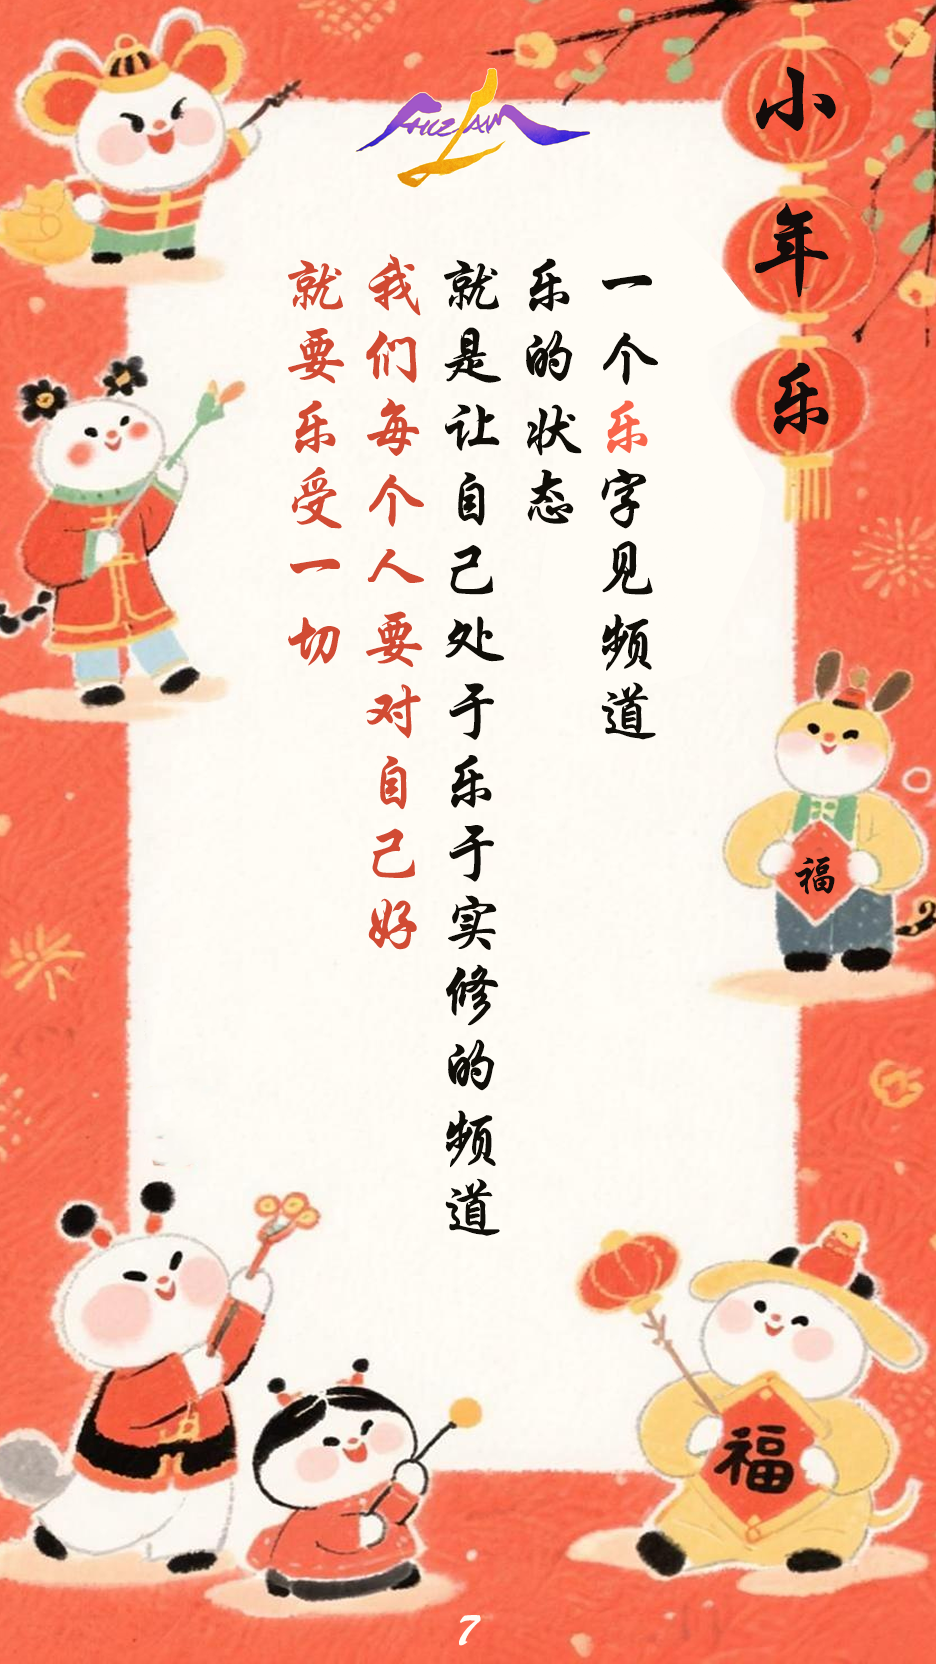 小年乐
一个乐字见频道
乐的状态
就是让自己处于乐于实修的频道
我们每个人要对自己好
就要乐受一切
福
福
7